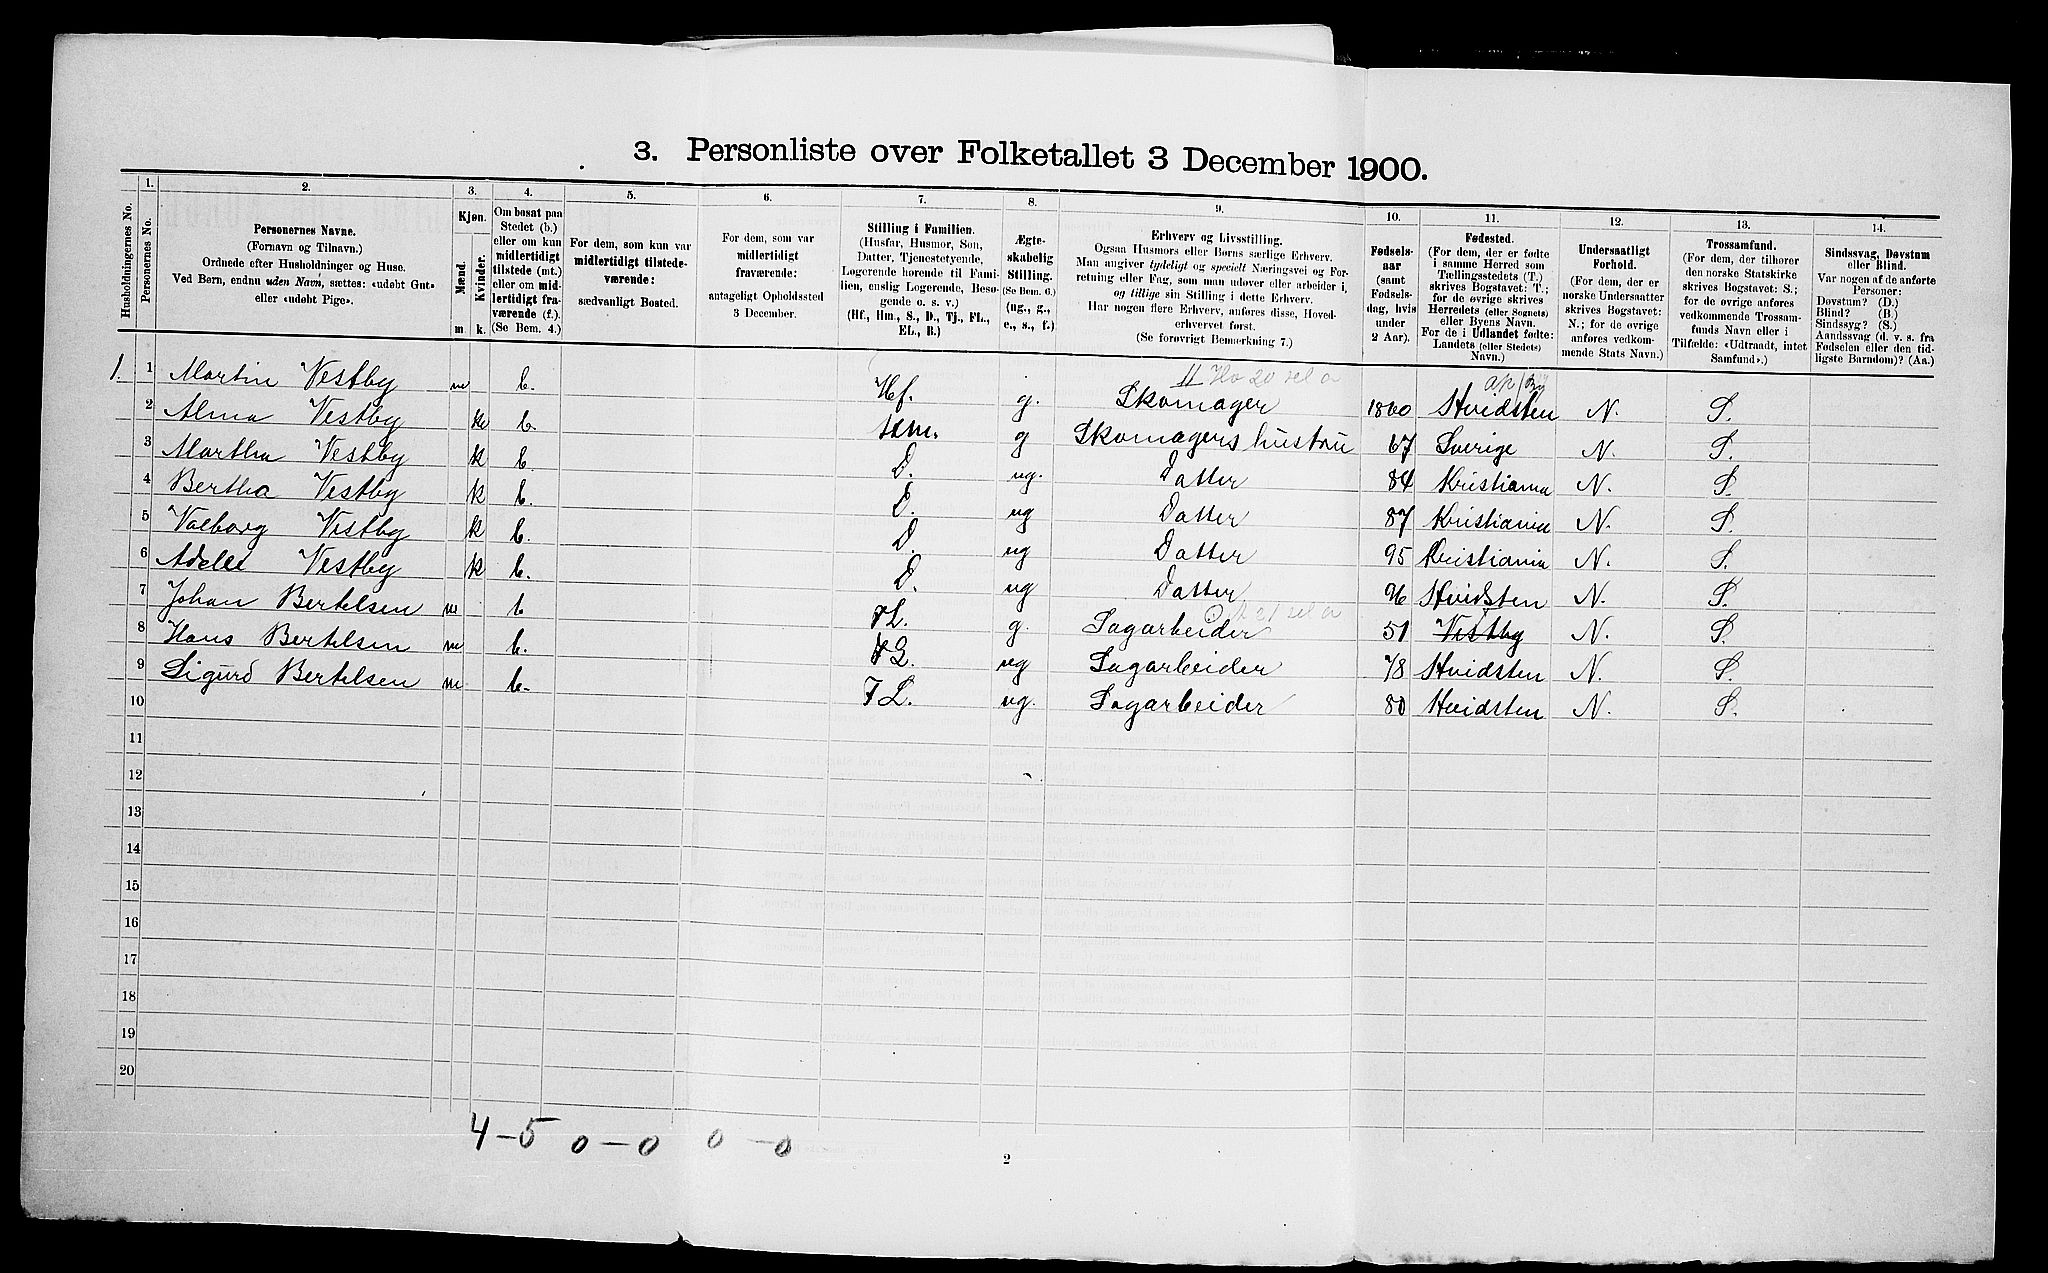 3. Personliste over Folketallet 3 December 1900.
Husholdningernes No.
1.
Personernes No.
2.
Personernes Navne.
(Fornavn og Tilnavn.)
Ordnede efter Husholdninger og Huse.
Ved Børn, endnu uden Navn, sættes: «udøbt Gut»
eller «udøbt Pige».
3.
Kjøn.
Mænd.
Kvinder.
m. k.
4.
Om bosat paa
Stedet (b.)
eller om kun
midlertidigt
tilstede (mt.)
eller om mid-
lertidigt fra-
værende (f.).
(Se Bem. 4.)
5.
For dem, som kun var
midlertidigt tilstede-
værende:
sædvanligt Bosted.
6.
For dem, som var
midlertidigt
fraværende:
antageligt Opholdssted
3 December.
7.
Stilling i Familien.
(Husfar, Husmor, Søn,
Datter, Tjenestetyende,
Logerende hørende til Fami-
lien, enslig Logerende, Besø-
gende o. s. v.)
(Hf., Hm., S., D., Tj., FL.,
EL., B.)
8.
Ægte-
skabelig
Stilling.
(Se Bem. 6.)
(ug., g.,
e., s., f.)
9.
Erhverv og Livsstilling.
Ogsaa Husmors eller Børns særlige Erhverv.
Man angiver tydeligt og specielt Næringsvei og For-
retning eller Fag, som man udøver eller arbeider i,
og tillige sin Stilling i dette Erhverv.
Har nogen flere Erhverv, anføres disse, Hoved-
erhvervet først.
(Se forøvrigt Bemerkning 7.)
10.
Fødsels-
aar
(samt
Fødsels-
dag, hvis
under
2 Aar).
11.
Fødested.
(For dem, der er fødte
i samme Herred som
Tællingsstedets (T.)
skrives Bogstavet: T.;
for de øvrige skrives
Herredets (eller Sognets)
eller Byens Navn.
For de i Udlandet fødte:
Landets (eller Stedets)
Navn.)
12.
Undersaatligt
Forhold.
(For dem, der er
norske Undersaatter
skrives Bogstavet:
N.; for de øvrige
anføres vedkom-
mende Stats Navn.)
13.
Trossamfund.
(For dem, der tilhører
den norske Statskirke
skrives Bogstavet: S.;
for de øvrige anføres
vedkommende Trossam-
funds Navn eller i
Tilfælde: «Udtraadt, intet
Samfund».)
14.
Sindssvag, Døvstum
eller Blind.
Var nogen af de anførte
Personer:
Døvstum? (D.)
Blind? (B.)
Sindssyg? (S.)
Aandssvag (d. v. s. fra
Fødselen eller den tid-
ligste Barndom)? (Aa.)
1. 1 Martin Vestby m b. Hf. g. Skomager 1860 Hvidsten N. S.
2 Alma Vestby k b. Hm. g Skomagers hustru 67 Sverige N. S.
3 Martha Vestby k b. D. ug. Datter 84 Kristiania N. S.
4 Bertha Vestby k b. D. ug Datter 87 Kristiania N. S.
5 Valborg Vestby k b. D. ug Datter 95 Kristiania N. S.
6 Adele Vestby k b. D. ug Datter 96 Hvidsten N. S.
7 Johan Bertelsen m b FL. g. Sagarbeider 51 Vestby N. S.
8 Hans Bertelsen m b. FL. ug Sagarbeider 78 Hvidsten N. S.
9 Sigurd Bertelsen m b. FL. ug. Sagarbeider 80 Hvidsten N. S.
10
11
12
13
14
15
16
17
18
19
20
4-5 0-0 0-0
2